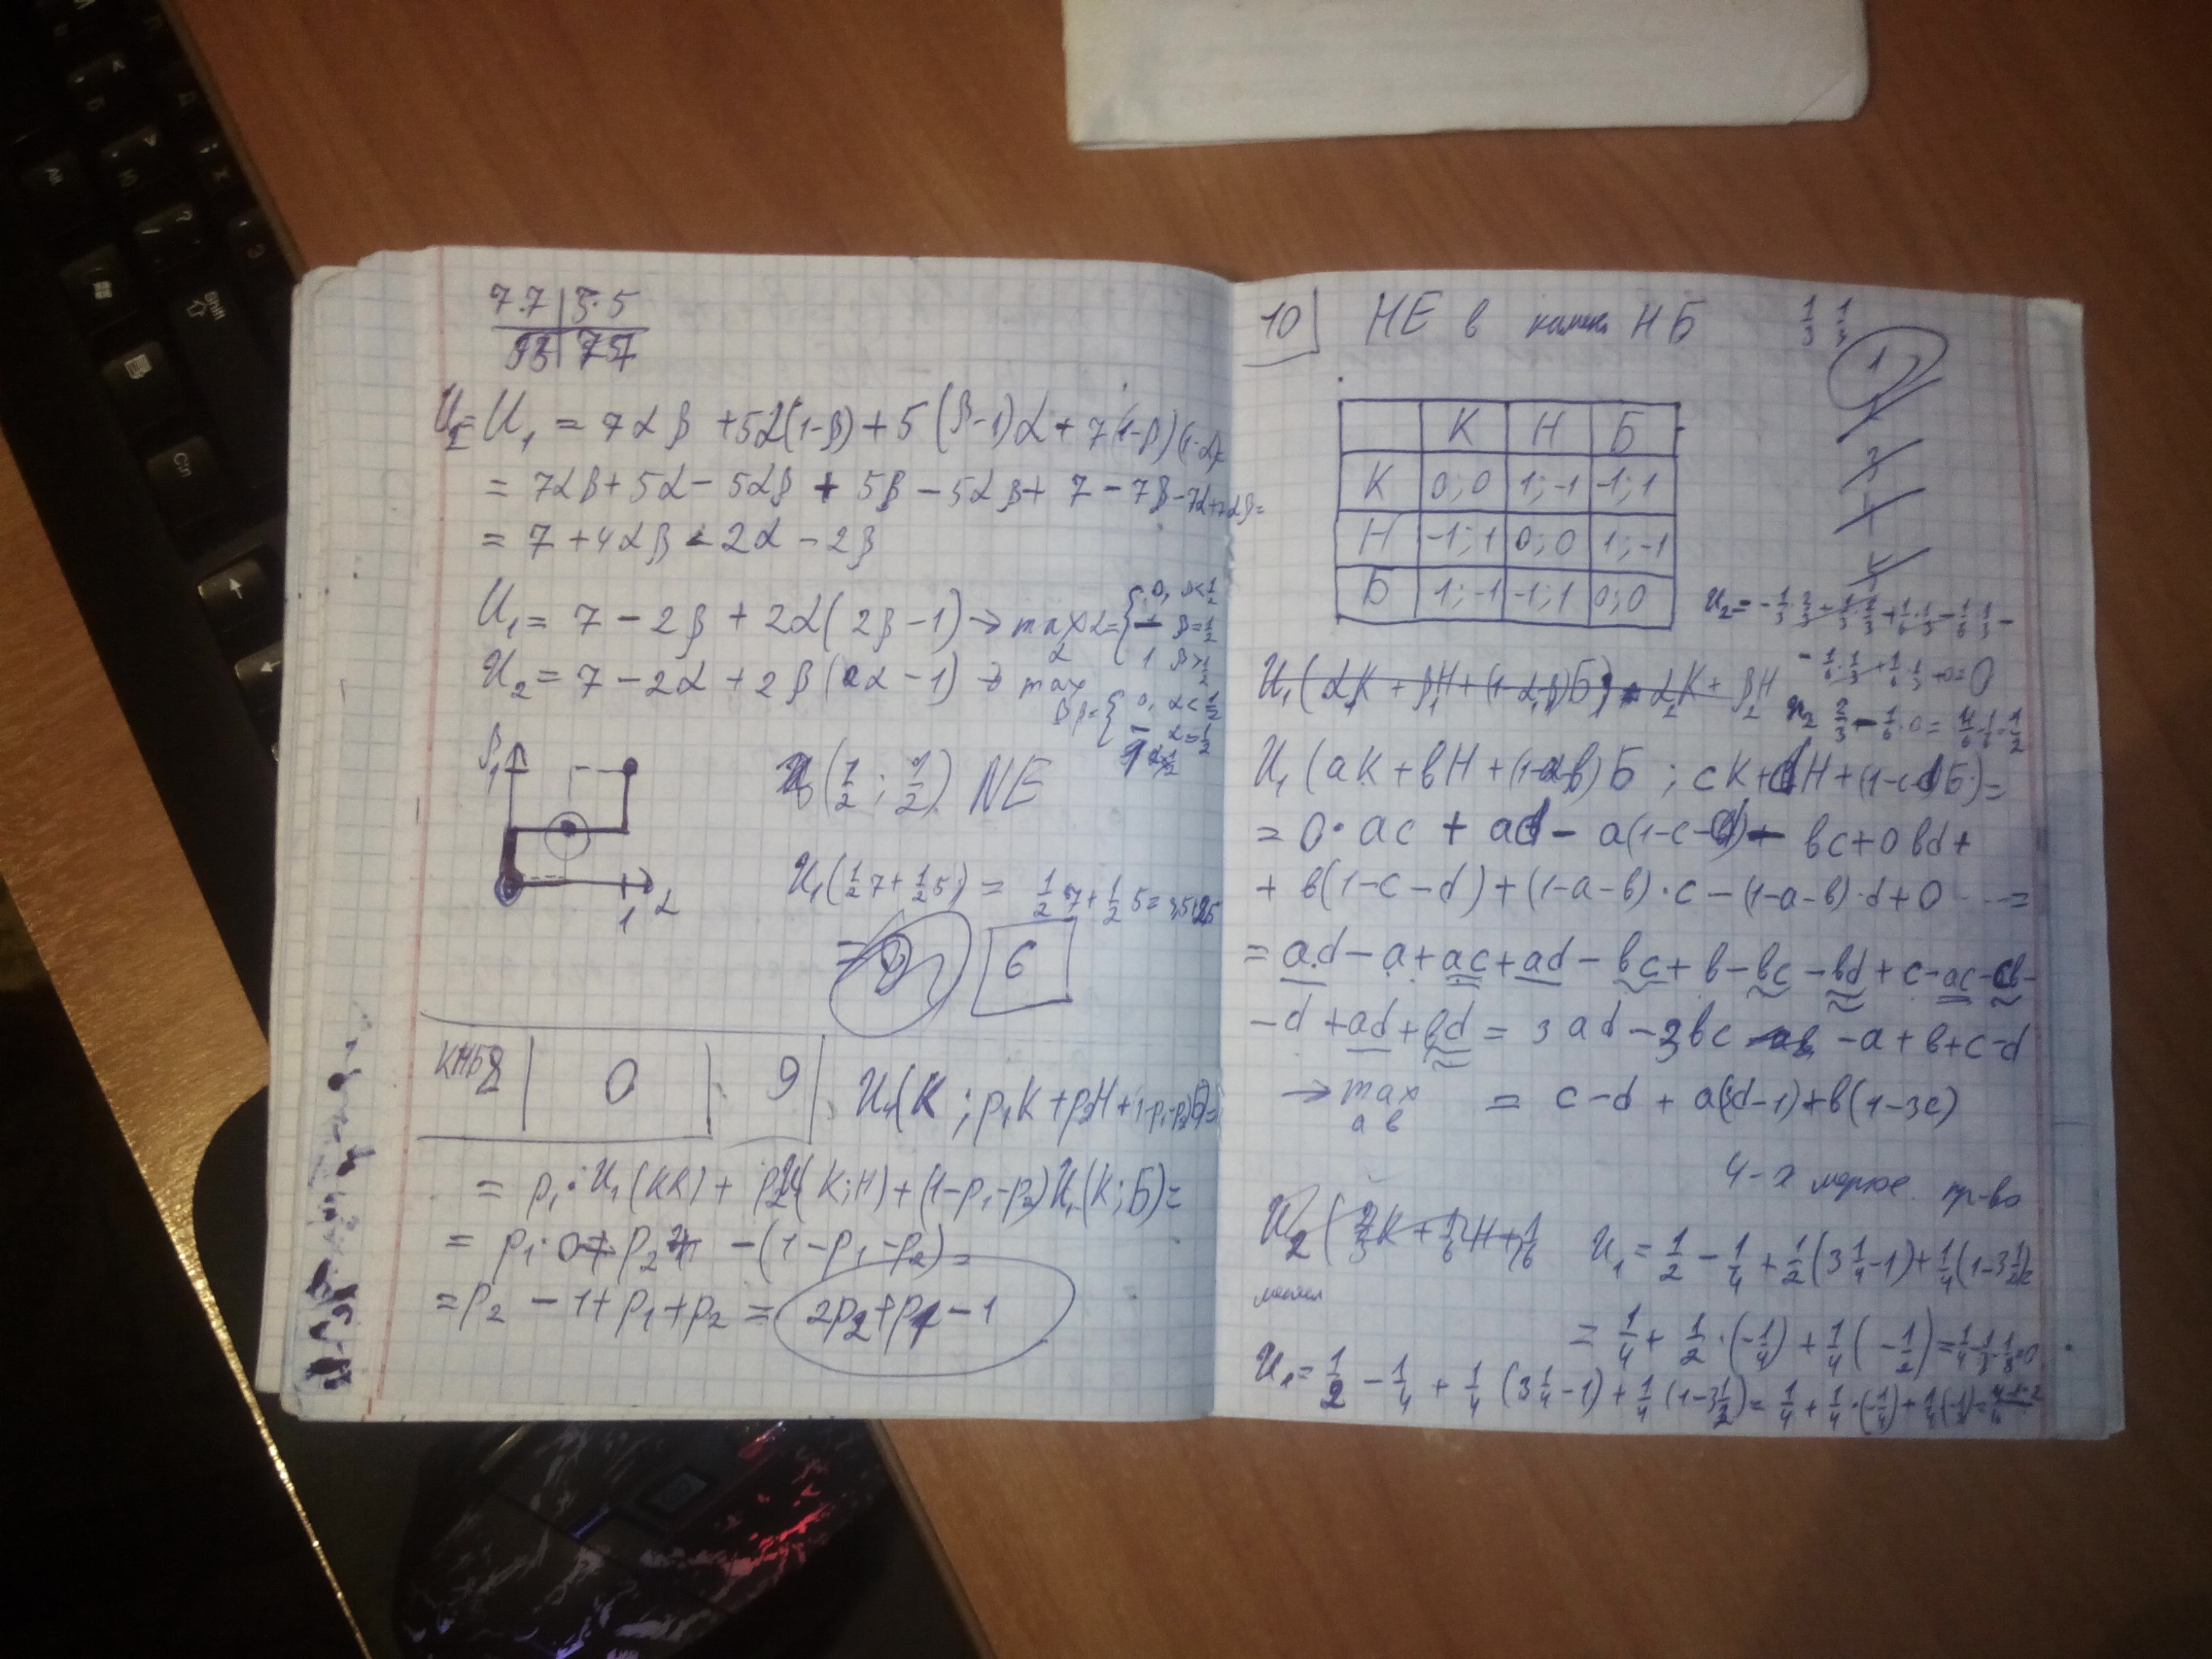 7.7 | 5.5
7 7
U₂ = U₁ = 7αβ + 5α(1-β) + 5(β-1)α + 7(1-β)(1-α)=
= 7αβ + 5α - 5αβ + 5β - 5αβ + 7 - 7β - 7α + 7αβ =
= 7 + 4αβ - 2α - 2β
U₁ = 7 - 2β + 2α(2β-1) → max α = { 0, β<1/2
- β=1/2
1 β>1/2
α
U₂ = 7 - 2α + 2β(2α-1) → max
β β = { 0, α<1/2
- α=1/2
β
1
1 α
(1/2 ; 1/2) NE
U₁(1/2 7 + 1/2 5) = 1/2 7 + 1/2 5 = 3,5+2,5
= 6
КНБ
8 | 0 | 9 | U₁(К ; p₁К + p₂Н + (1-p₁-p₂)Б) =
= p₁·U₁(КК) + p₂U₁(К;Н) + (1-p₁-p₂)U₁(К;Б) =
= p₁·0 + p₂ - (1-p₁-p₂) =
= p₂ - 1 + p₁ + p₂ = 2p₂ + p₁ - 1
10 НЕ в камен НБ 1/3 1/3
1
К Н Б
К 0;0 1;-1 -1;1
Н -1;1 0;0 1;-1
Б 1;-1 -1;1 0;0
U₂ = -1/3·2/3 + 1/3·2/3 + 1/6·1/3 - 1/6·1/3 -
- 1/6·1/3 + 1/6·1/3 + 0 = 0
2/3 - 1/6·0 = 4/6
U₁(aК + bН + (1-a-b)Б ; cК + dН + (1-c-d)Б) =
= 0·ac + ad - a(1-c-d) - bc + 0bd +
+ b(1-c-d) + (1-a-b)·c - (1-a-b)·d + 0 ... =
= ad - a + ac + ad - bc + b - bc - bd + c - ac - cb -
- d + ad + bd = 3ad - 3bc - a + b + c - d
→ max = c - d + a(3d-1) + b(1-3c)
a b
4-х мерное пр-во
U₂(2/3К + 1/6Н + 1/6
U₁ = 1/2 - 1/4 + 1/2(3 1/4 - 1) + 1/4(1 - 3 1/2) =
= 1/4 + 1/2·(-1/4) + 1/4(-1/2) = 1/4 - 1/8 - 1/8 = 0
U₁ = 1/2 - 1/4 + 1/4(3 1/4 - 1) + 1/4(1 - 3 1/2) = 1/4 + 1/4·(-1/4) + 1/4(-1/2) =